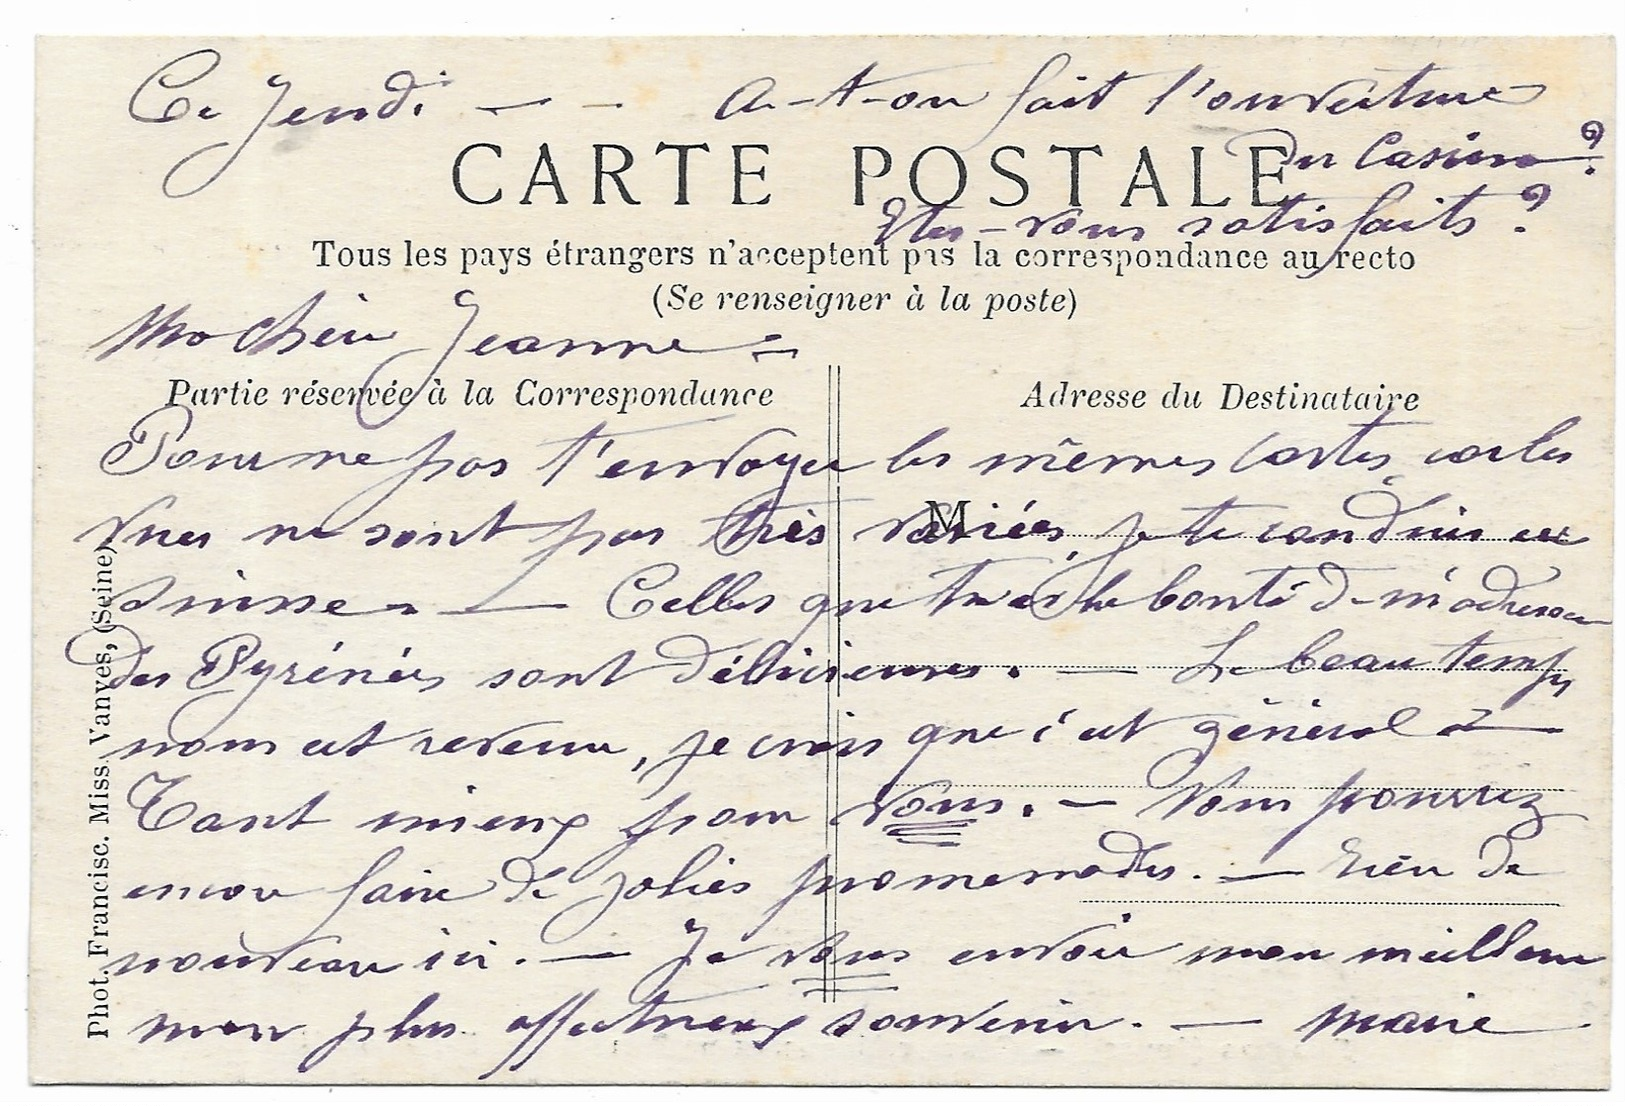 Ce Jeudi — - A-t-on fait l'ouverture
du Casino ?
CARTE POSTALE
Etes-vous satisfaits ?
Tous les pays étrangers n'acceptent pas la correspondance au recto
(Se renseigner à la poste)
Ma chère Jeanne -
Partie réservée à la Correspondance
Adresse du Destinataire
Pour ne pas t'envoyer les mêmes cartes, car les
M
vues ne sont pas très variées, je te conduis en
Suisse. — Celles que tu as la bonté de m'adresser
des Pyrénées sont délicieuses. — Le beau temps
nous est revenu, je crois que c'est général —
Tant mieux pour vous. — Vous pourrez
encore faire de jolies promenades. — Rien de
nouveau ici. — Je vous envoie mon meilleur
mon plus affectueux souvenir. — Marie
Phot. Francisc. Miss. Vanves, (Seine)